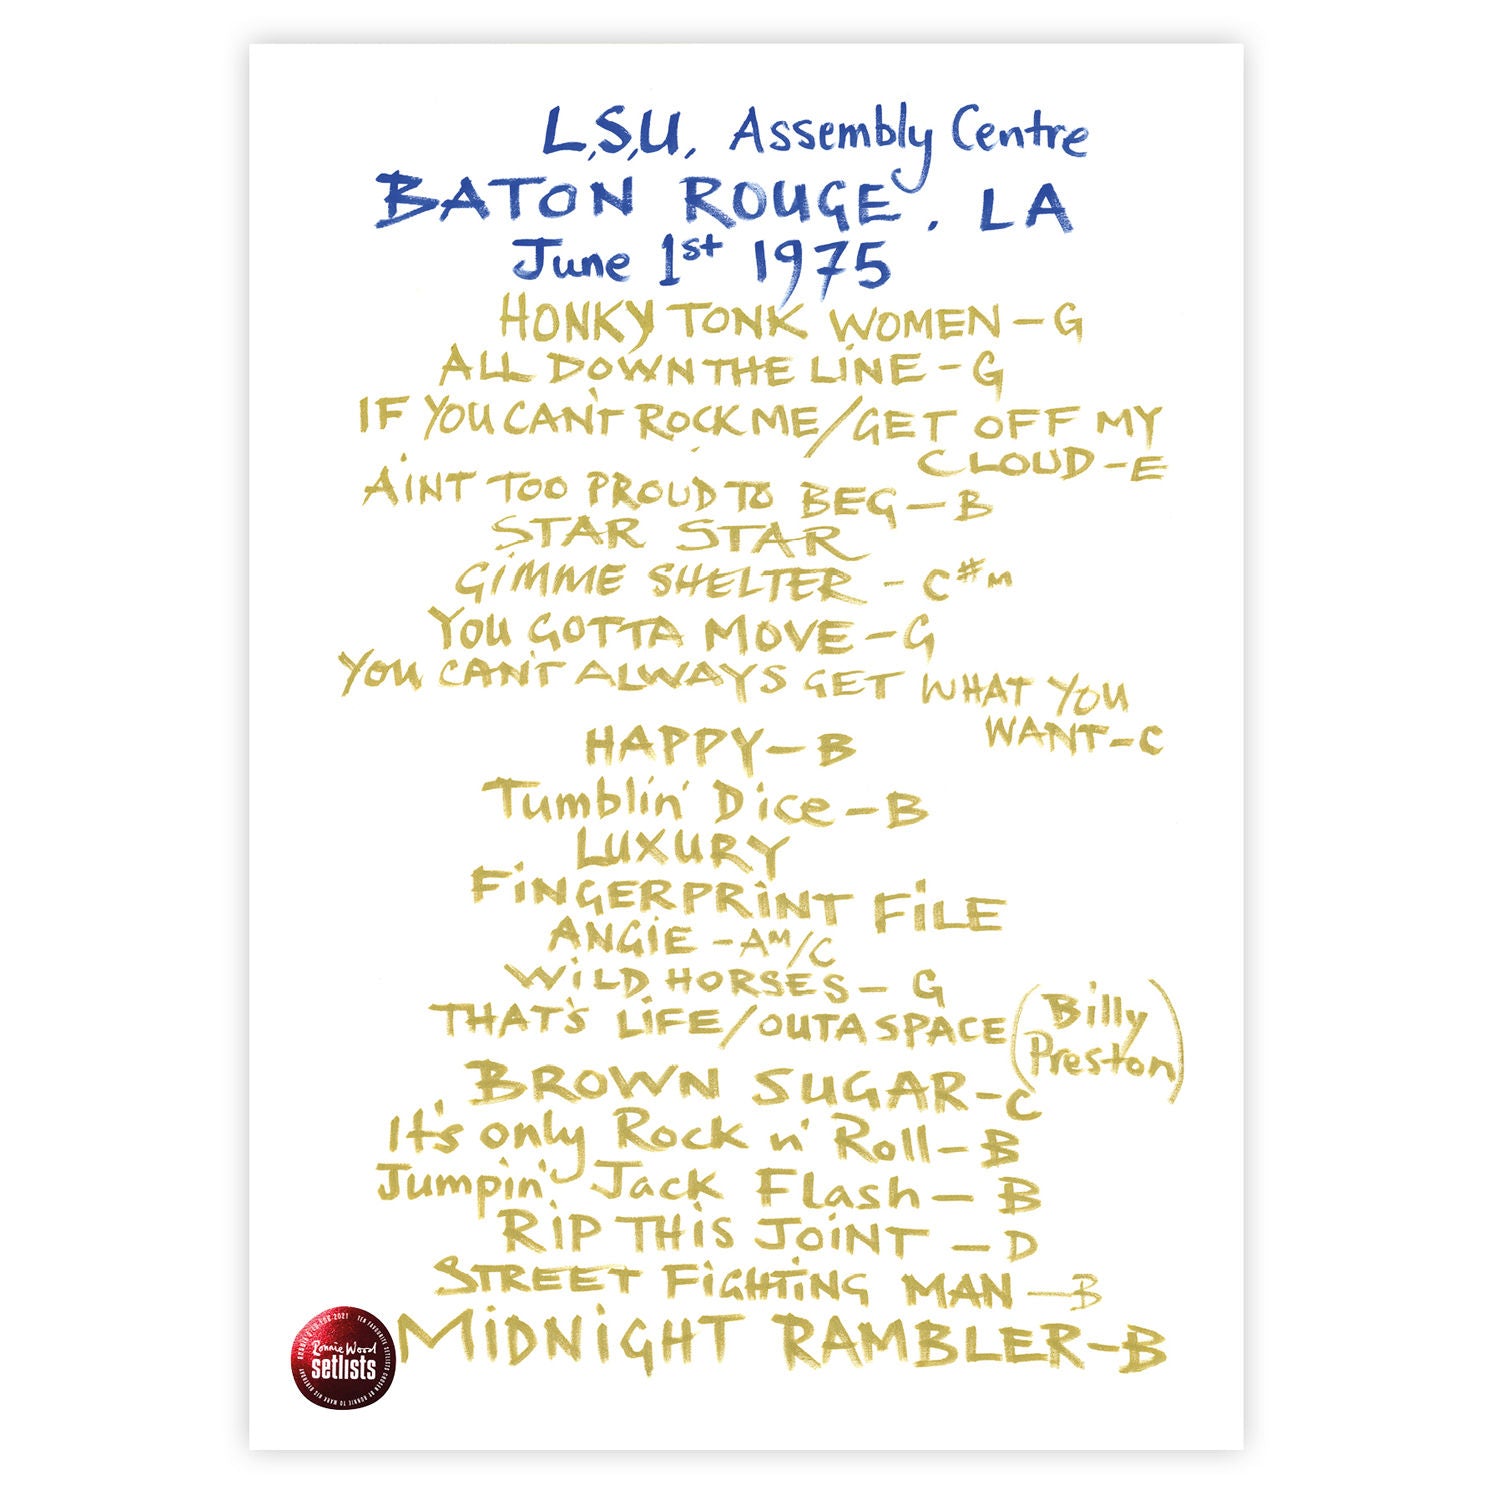 L,S,U, Assembly Centre
BATON ROUGE, LA
June 1st 1975
HONKY TONK WOMEN - G
ALL DOWN THE LINE - G
IF YOU CAN'T ROCK ME/GET OFF MY
CLOUD - E
AIN'T TOO PROUD TO BEG - B
STAR STAR
GIMME SHELTER - C#m
YOU GOTTA MOVE - G
YOU CAN'T ALWAYS GET WHAT YOU
WANT - C
HAPPY - B
Tumblin' Dice - B
LUXURY
FINGERPRINT FILE
ANGIE - AM/C
WILD HORSES - G
THAT'S LIFE/OUTASPACE (Billy
Preston)
BROWN SUGAR - C
It's only Rock n' Roll - B
Jumpin' Jack Flash - B
RIP THIS JOINT - D
STREET FIGHTING MAN - B
MIDNIGHT RAMBLER - B
Ronnie Wood
setlists